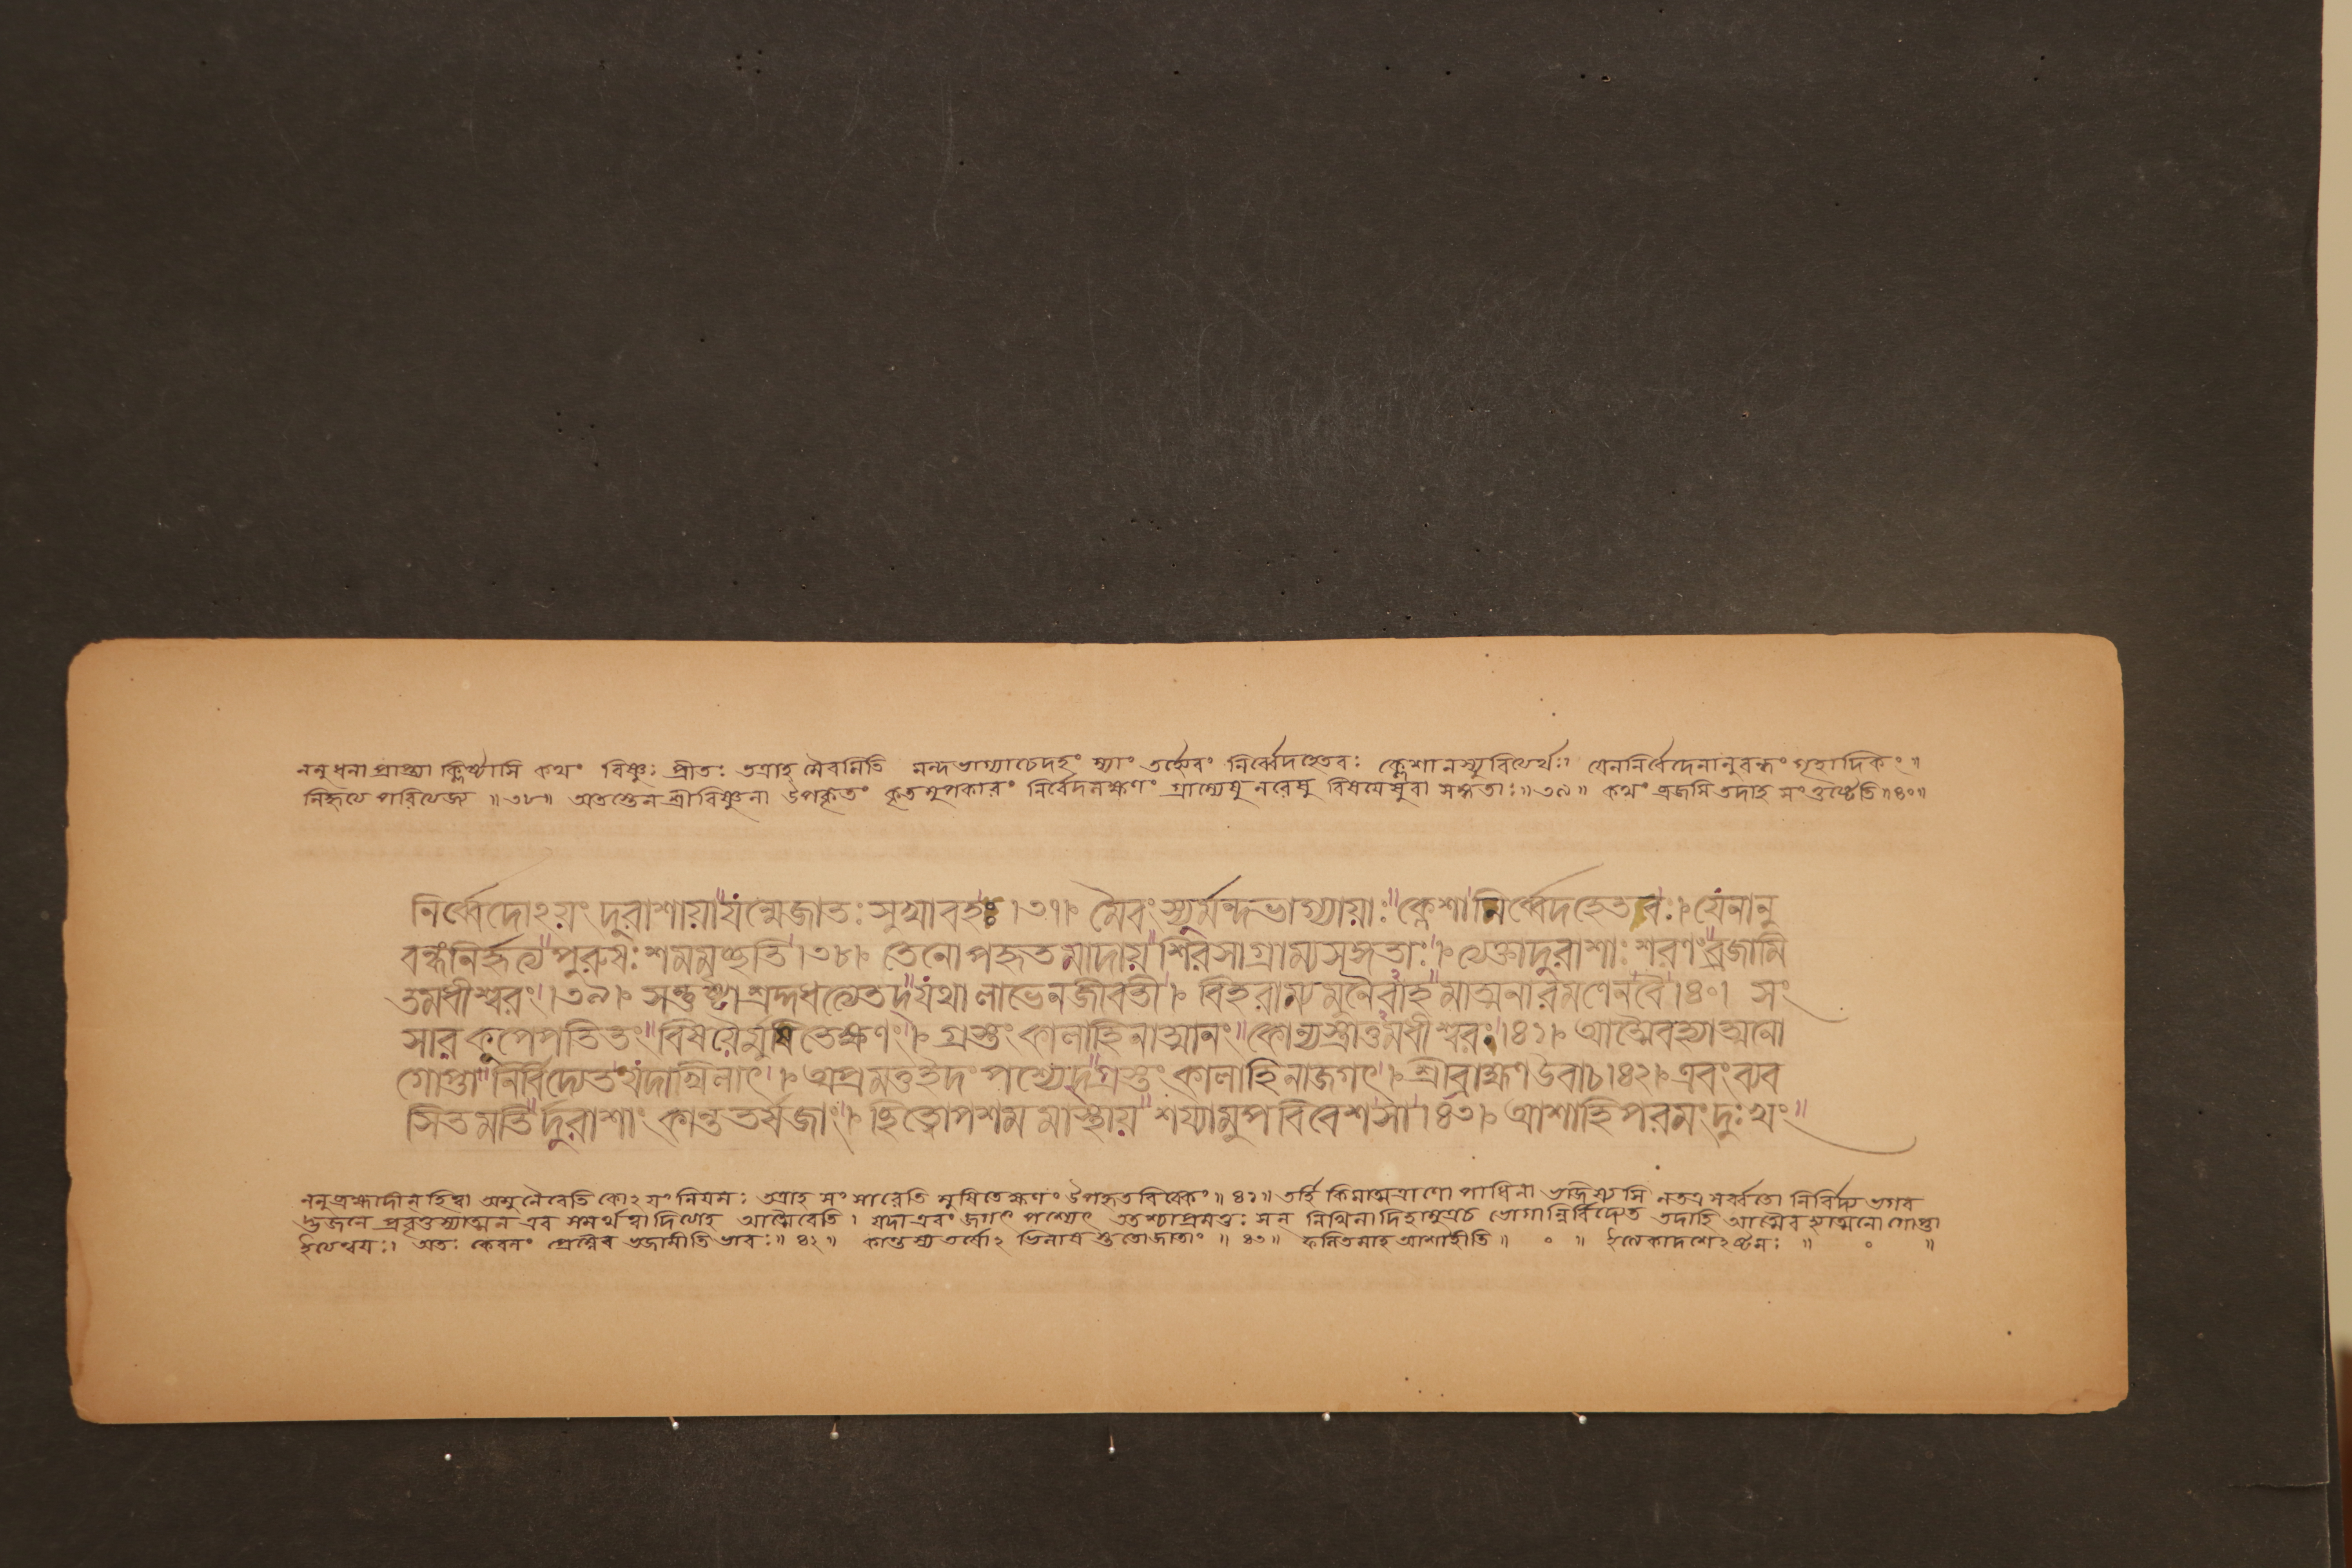 ননু ধনা প্রাপ্ত্যা ক্লিষ্টাসি কথং বিষ্ণুঃ প্রীতঃ তত্রাহ মৈবমিতি মন্দভাগ্যাচেদহং স্যাং তর্হ্যেবং নির্ব্বেদহেতবঃ ক্লেশা নস্যুরিত্যর্থঃ। যেননির্বেদেনানুবন্ধং গৃহাদিকং॥
নির্হৃত্য পরিত্যজ্য ॥৩৮॥ অতস্তেন শ্রীবিষ্ণুনা উপকৃতং কৃতমুপকারং নির্বেদলক্ষণং গ্রাম্যেষু নরেষু বিষয়েষুবা সঙ্গতাঃ॥৩৯॥ কথং ব্রজসি তদাহ সংতুষ্টেতি॥৪০॥
নির্ব্বেদোঽয়ং দুরাশায়া যন্মেজাতঃ সুখাবহঃ।৩৭। মৈবং স্যুর্মন্দভাগ্যায়াঃ ক্লেশা নির্ব্বেদহেতবঃ। যেনানু
বন্ধংনির্হৃত্য পুরুষঃ শমমৃচ্ছতি।৩৮। তেনোপহৃতমাদায় শিরসাগ্রাম্যসঙ্গতাঃ। ত্যক্তাদুরাশাঃ শরণং ব্রজামি
তমধীশ্বরং।৩৯। সন্তুষ্টাশ্রদ্দধত্যেতদ্ যথালাভেনজীবতী। বিহরাম্যমুনৈবাহ মাত্মনারমণেনবৈ।৪০। সং
সারকূপেপতিতং বিষয়ৈর্মুষিতেক্ষণং। গ্রস্তং কালাহিনাত্মানং কোন্যস্ত্রাতুমধীশ্বরঃ।৪১। আত্মৈবহ্যাত্মনো
গোপ্তা নির্বিদ্যেত যদাখিলাৎ। অপ্রমত্তইদং পশ্যেদ্ গ্রস্তং কালাহিনাজগৎ। শ্রীব্রাহ্মণ উবাচ।৪২। এবং ব্যব
সিতমতি র্দুরাশাং কান্ততর্ষজাং। ছিত্বোপশমমাস্থায় শয্যামুপবিবেশ সা।৪৩। আশাহি পরমং দুঃখং
ননু ব্রহ্মাদীন্ হিত্বা অমুনৈবেতি কোঽয়ং নিয়মঃ তত্রাহ সংসারেতি মুষিতেক্ষণং উপহৃতবিবেকং॥৪১॥ তর্হি কিমাত্মত্রাণোপাধিনা ভজিষ্যসি নতত্র সর্ব্বতো নির্বিদ্য ভগব
দ্ভজনে প্রবৃত্তস্যাত্মন এব সমর্থত্বাদিত্যাহ আত্মৈবেতি। যদা এবং জগৎ পশ্যেৎ ততশ্চাপ্রমত্তঃ সন্ নিখিলাদিহামুত্রচ ভোগান্নির্বিদ্যেত তদাহি আত্মৈব হ্যাত্মনো গোপ্তা
ইত্যন্বয়ঃ। অতঃ কেবলং প্রেম্নৈব ভজামীতি ভাবঃ॥৪২॥ কান্তস্য তর্ষোঽভিলাষ স্ততোজাতাং॥৪৩॥ ফলিতমাহ আশাহীতি॥ ০॥ ইত্যেকাদশেঽষ্টমঃ॥ ০ ॥